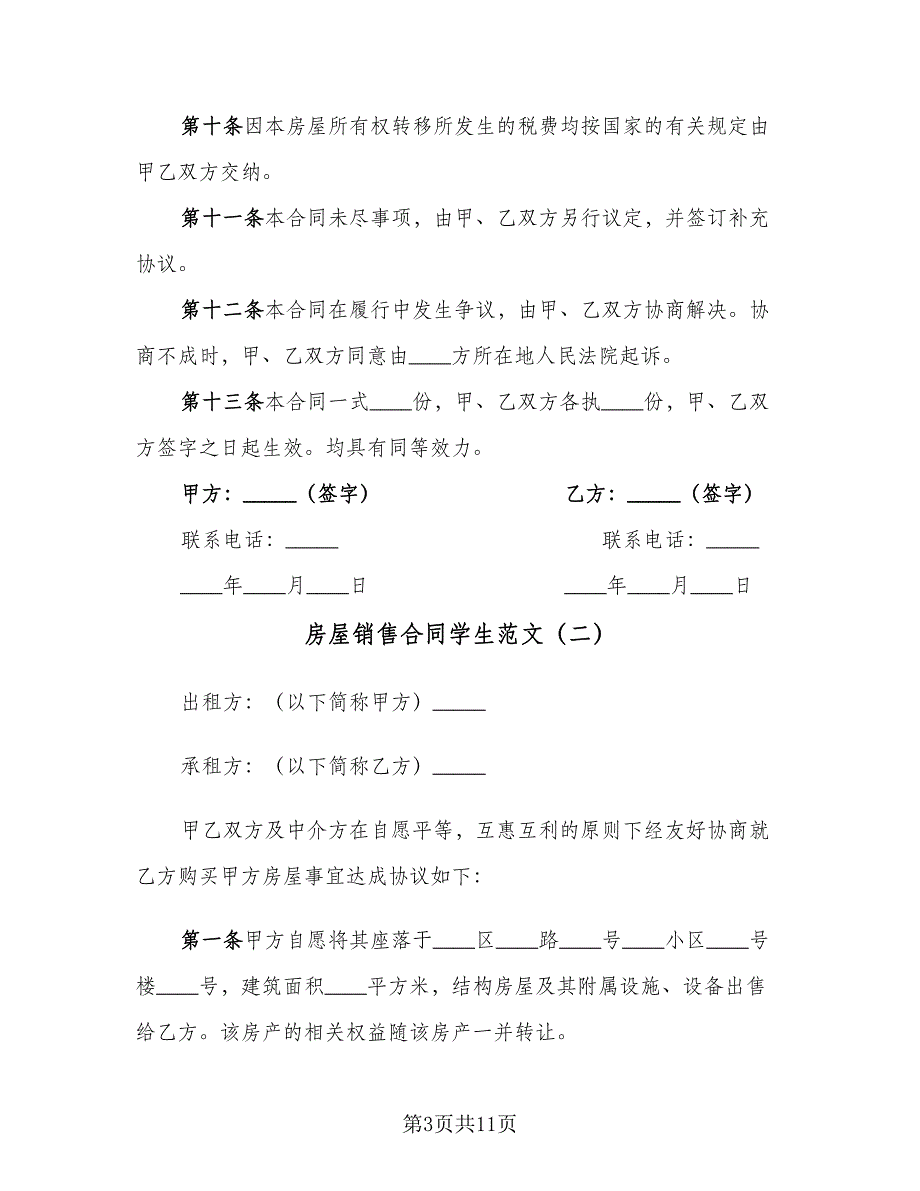 第十条因本房屋所有权转移所发生的税费均按国家的有关规定由
甲乙双方交纳。
第十一条本合同未尽事项，由甲、乙双方另行议定，并签订补充
协议。
第十二条本合同在履行中发生争议，由甲、乙双方协商解决。协
商不成时，甲、乙双方同意由____方所在地人民法院起诉。
第十三条本合同一式____份，甲、乙双方各执____份，甲、乙双
方签字之日起生效。均具有同等效力。
甲方：_____（签字） 乙方：_____（签字）
联系电话：_____ 联系电话：_____
____年____月____日 ____年____月____日
房屋销售合同学生范文（二）
出租方：（以下简称甲方）_____
承租方：（以下简称乙方）_____
甲乙双方及中介方在自愿平等，互惠互利的原则下经友好协商就
乙方购买甲方房屋事宜达成协议如下：
第一条甲方自愿将其座落于____区____路____号____小区____号
楼____号，建筑面积____平方米，结构房屋及其附属设施、设备出售
给乙方。该房产的相关权益随该房产一并转让。
第3页共11页